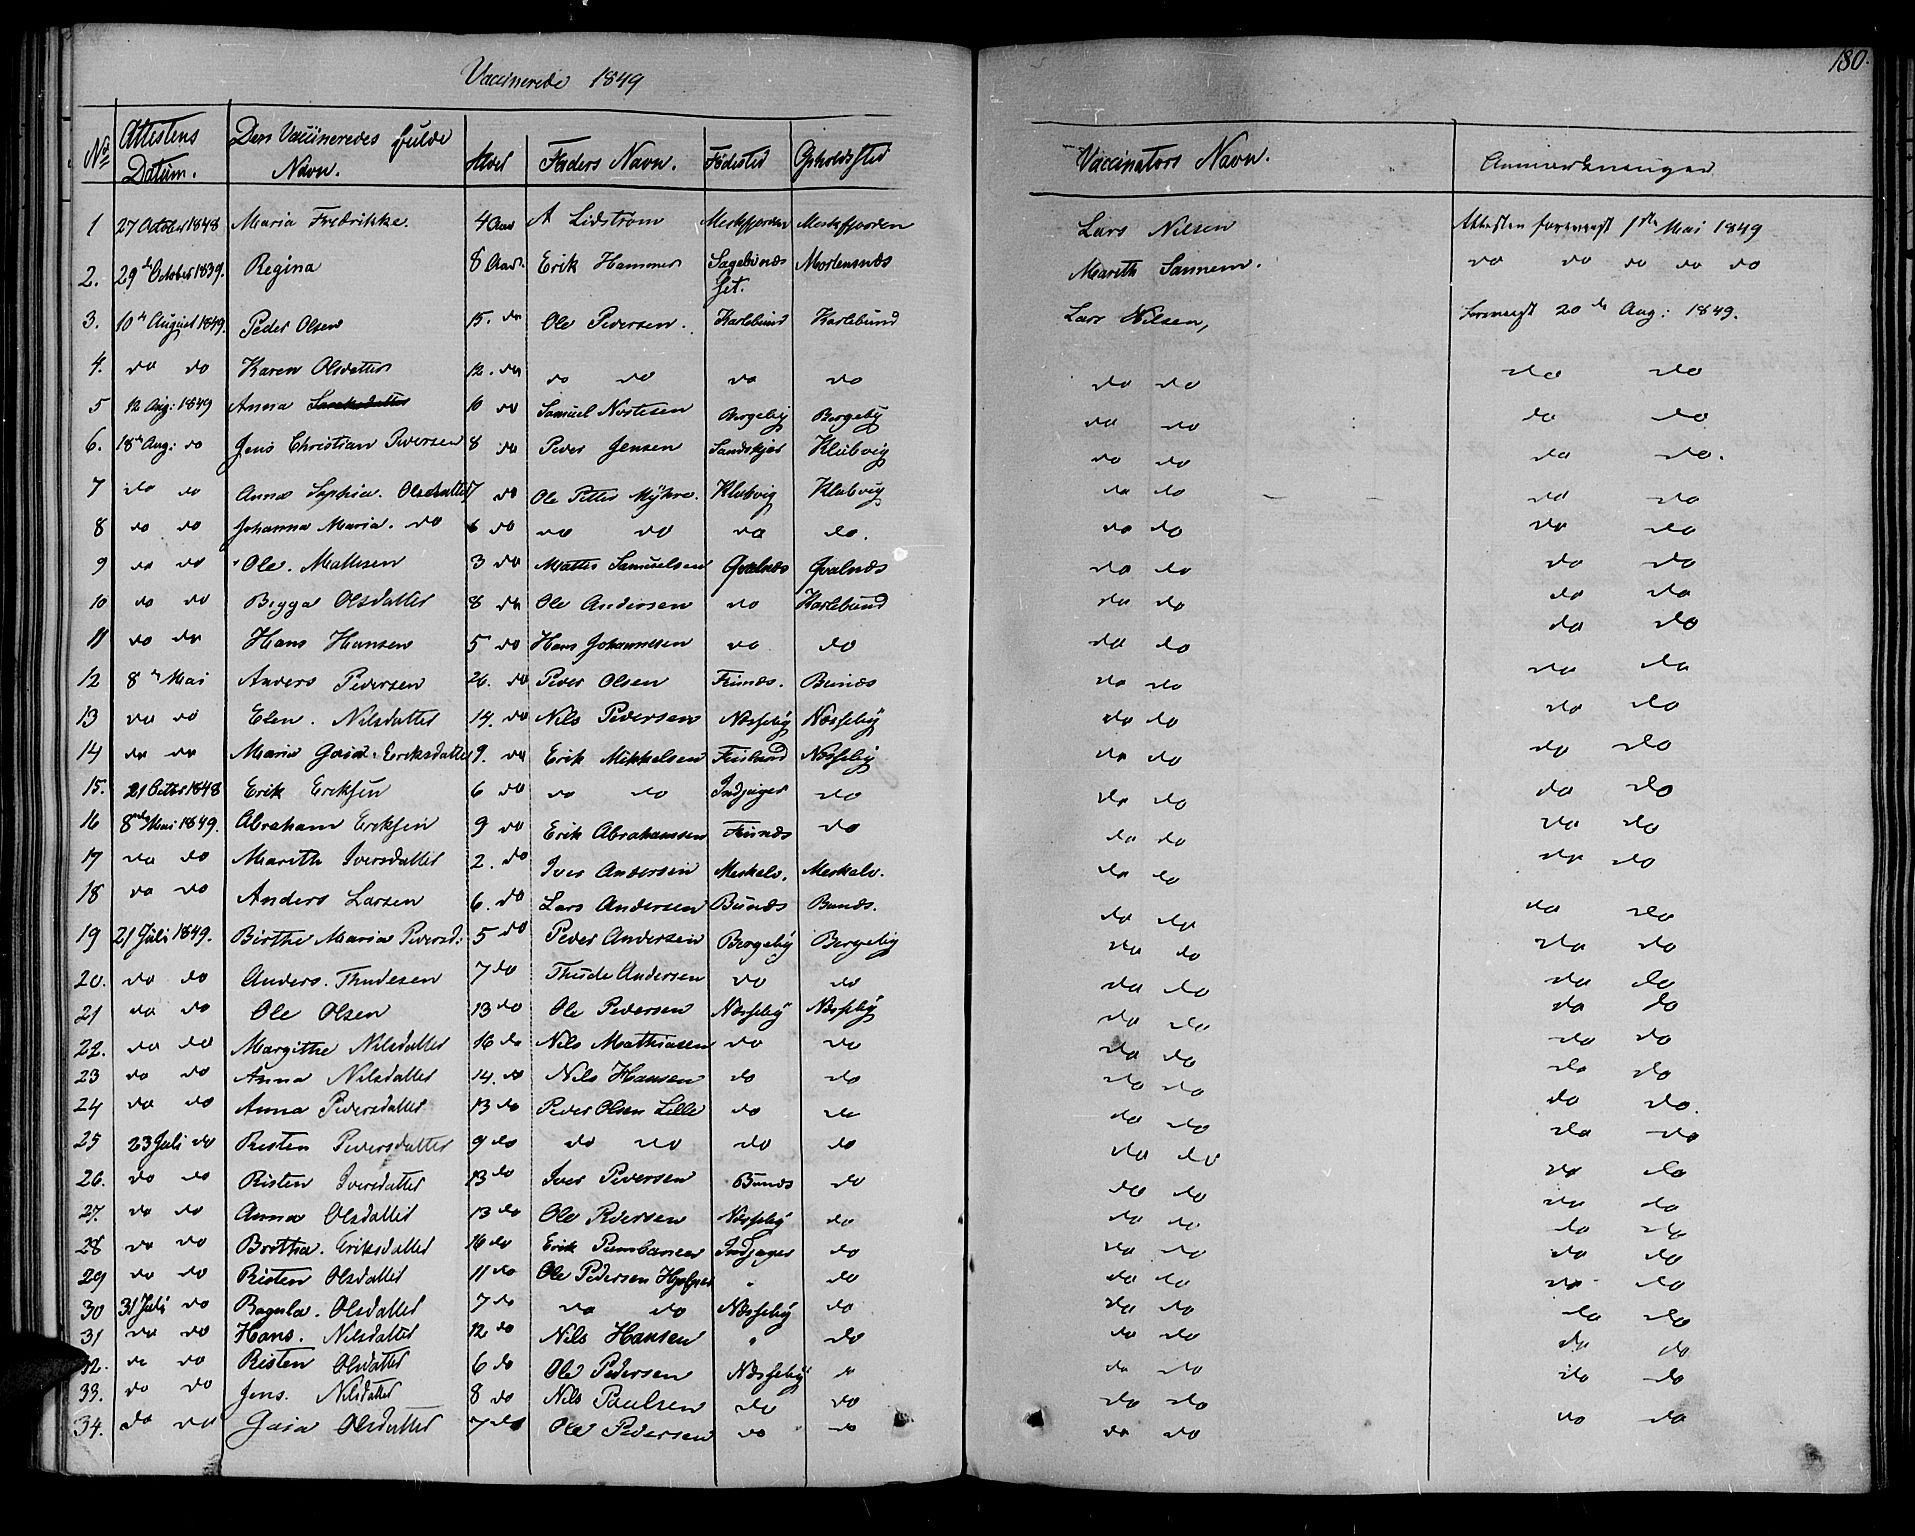 180.
Vaccinerede 1849
No Attestens Datum. Den Vaccineredes fulde Navn. Alder Faders Navn. Fødested Opholdssted Vaccinators Navn. Anmærkninger
1 27 October 1848 Maria Fredrikke. 4 Aar A Lidstrøm Meskfjorden Meskfjorden Lars Nilsen Attesten foreviist 1ste Mai 1849
2. 29de October 1839. Regina 8 Aar. Erik Hammer Mortensnæs Mareth do do do do do
3. 10de August 1849. Peder Olsen 15. do Ole Pedersen. Karlebund Karlebund Lars Nilsen, Foreviist 20de Aug: 1849.
4. do do Karen Olsdatter 12. do do do do do do do do do
5 12 Aug: 1849 Anna 10 do Samuel Bergeby Bergeby do do do do
6. 18de Aug: do Jens Christian Pedersen 8 do Peder Jensen Sandskjer Klubvig do do do do.
7 do do Anna Sophia. Olsdatter 7 do Ole Petter Myhre. Klubvig Klubvig do do do do
8 do do Johanna Maria. do 6 do do do do do. do do do do
9 do do Ole. Mathisen 3 do Mathis Samuelsen Qvalnæs Qvalnæs do do do do
10 do do Bigga Olsdatter 8 do Ole Andersen do Karlebund do do do do
11 do do Hans Hansen 5 do Hans Johannesen do do do do do do
12 8de Mai Anders Pedersen 26. do Peder Olsen Bunæs do do do do
13 do do Elen. Nilsdatter 14. do Nils Pedersen Næsseby Næsseby do do do do
14 do do Maria Gaia. Eriksdatter 9. do Erik Mikkelsen Næsseby do do do do
15. 21 Octbr 1848 Erik Eriksen 6 do do do Indjager do do do do do
16 8nde Mai 1849. Abraham Eriksen 9 do Erik Abrahamsen do do do do do
17 do do Marith Iversdatter 2. do Iver Andersen Meskelv. Meskelv. do do do do
18 do do Anders Larsen 6. do Lars Andersen Bunæs Bunæs. do do do do
19 21 Juli 1849. Birthe Maria Pedersd: 5 do Peder Andersen Bergeby Bergeby do do do do
20. do do Anders. Thudesen 7 do Thude Andersen do do do do do do
21 do do Ole Olsen 13 do Ole Pedersen Næsseby Næsseby do do do do
22. do do Margithe Nilsdatter 16 do Nils Mathiasen do do do do do do
23 do do Anna Nilsdatter 14. do Nils Hansen do do do do do do
24 do do Anna Pedersdatter 13 do Peder Olsen Lille do do do do do do.
25 23 Juli do Risten Pedersdatter 9 do do do do do do do do do
26. do do Risten Iversdatter 13 do Iver Pedersen Bunæs do do do do do
27. do do Anna Olsdatter 13 do Ole Pedersen Næsseby do do do do do
28 do do Birtha. Eriksdatter 16 do Erik Indjager do do do do do
29 do do Risten Olsdatter 11 do Ole Pedersen " do do do do do
30 31 Juli do Ragnla. Olsdatter 7 do do do Næsseby do do do do do
31 do do Hans. Nilsdatter 12 do Nils Hansen " do do do do do
32. do do Risten Olsdatter 6 do Ole Pedersen Næsseby " do do do do
33. do do Jens. Nilsdatter 8 do Nils Paulsen do do do do do do
34. do do Gaia Olsdatter 7 do Ole Pedersen do do do do do do